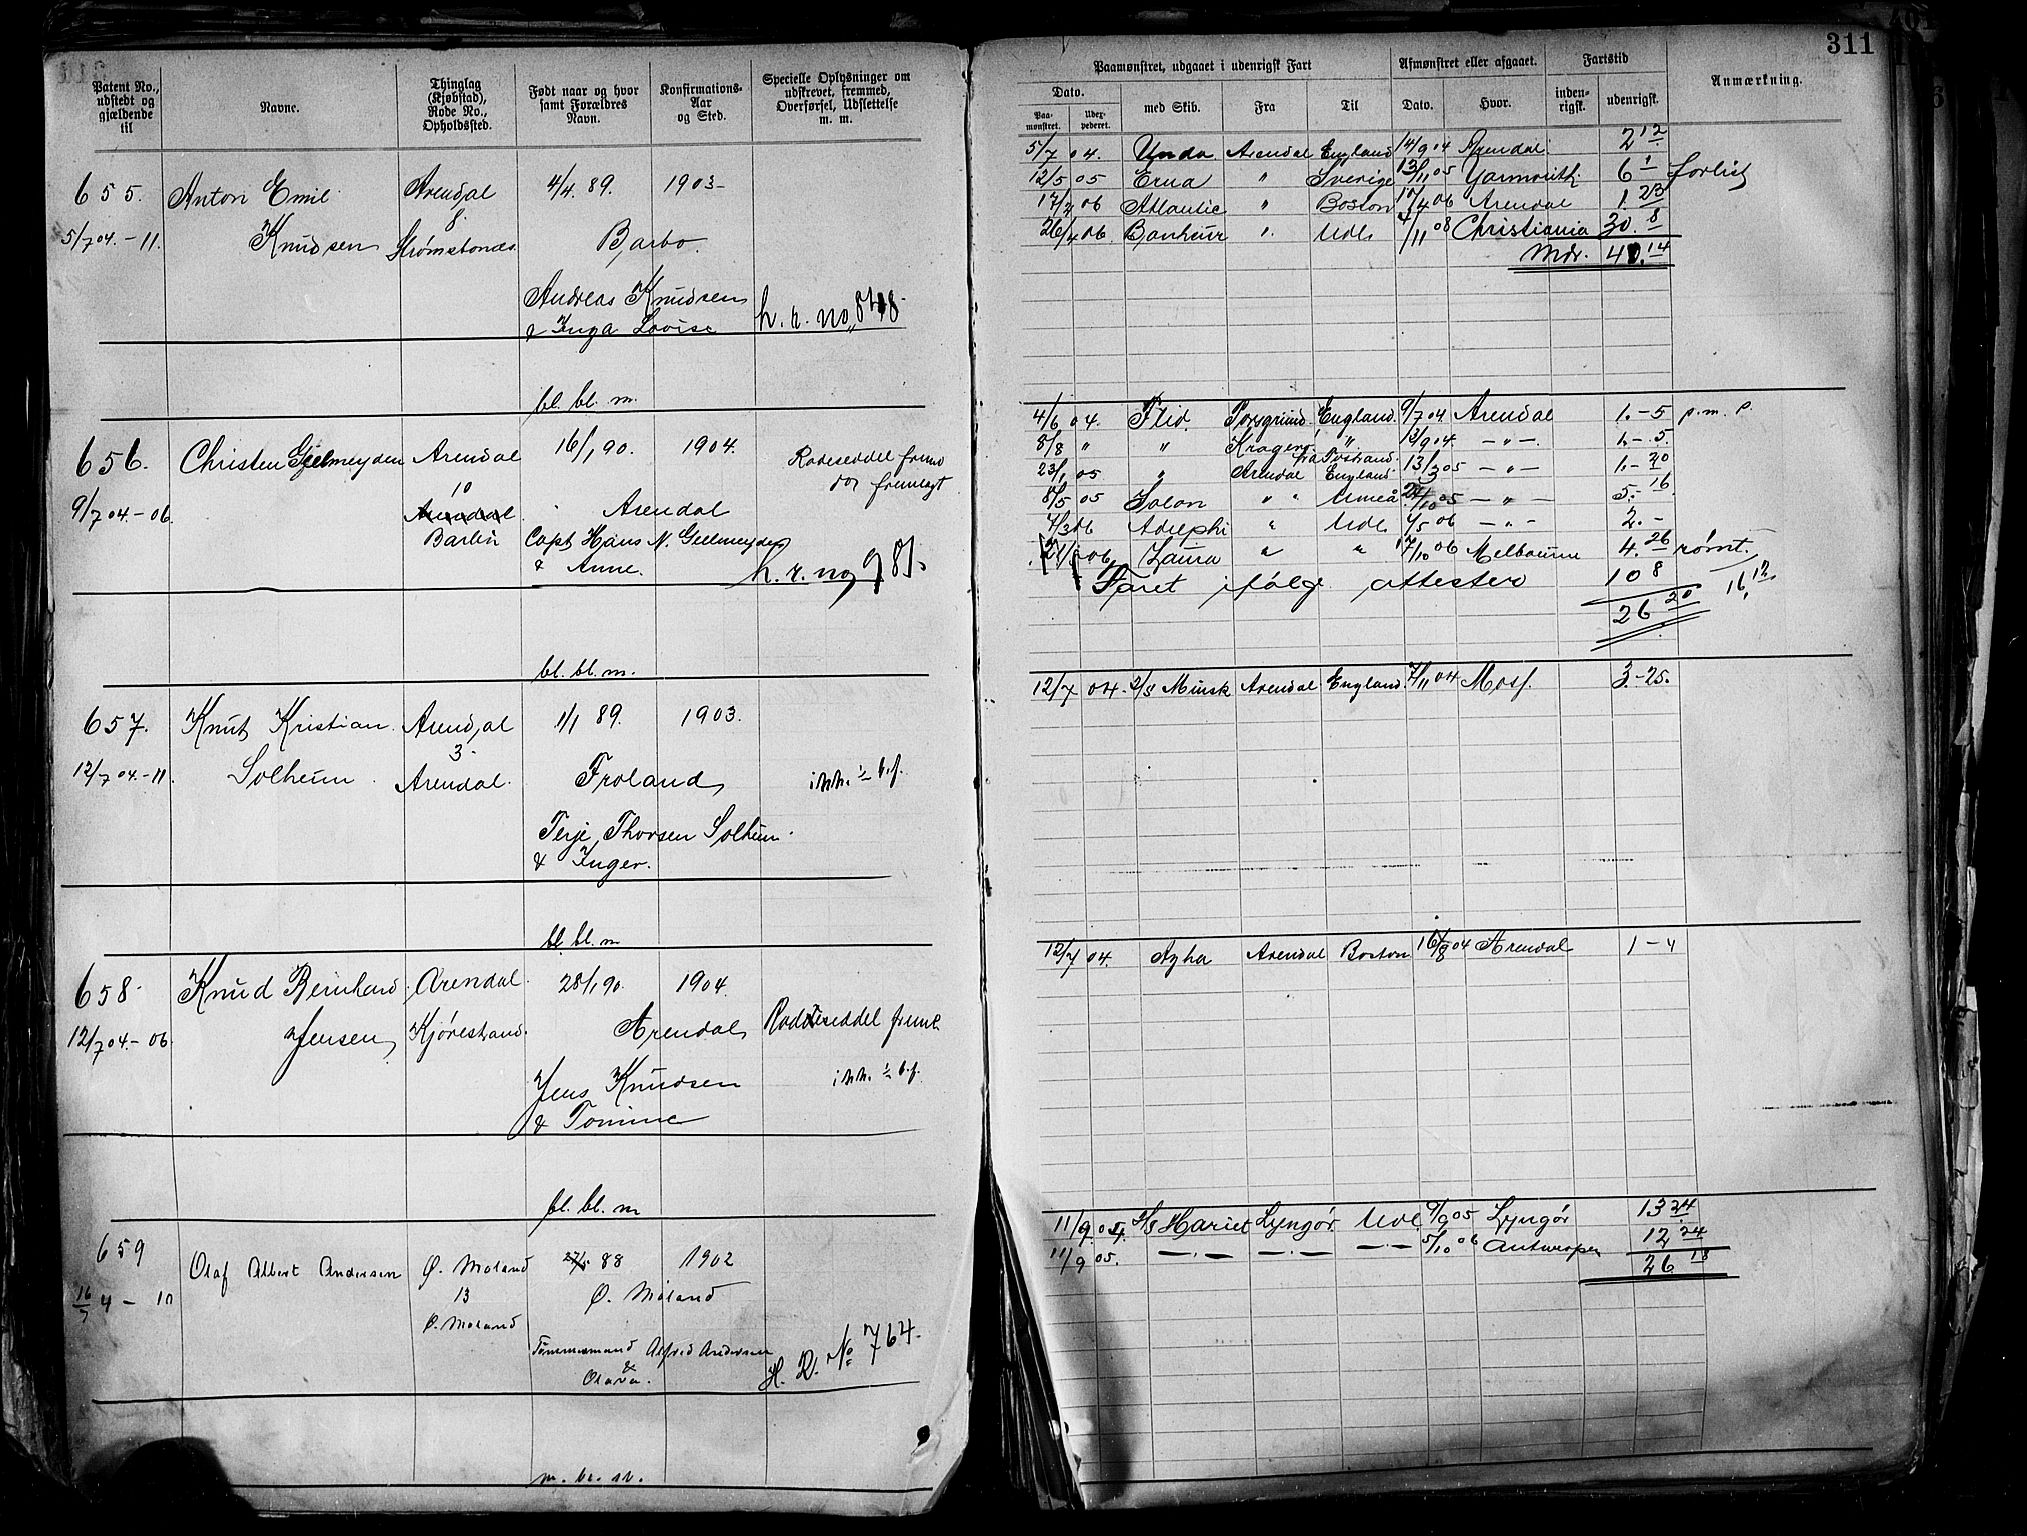 311
Patent No., udstedt og gjældende til
Navne.
Thinglag (Kjøbstad), Rode No., Opholdssted.
Født naar og hvor samt Forældres Navn.
Konfirmations-Aar og Sted.
Specielle Oplysninger om udskrevet, fremmed, Overførsel, Udslettelse m. m.
Paamønstret, udgaaet i udenrigsk Fart
Afmønstret eller afgaaet.
Fartstid
Anmærkning.
Dato.
Paa-mønstret.
Udex-pederet.
med Skib.
Fra
Til
Dato.
Hvor.
inden-rigsk.
udenrigsk.
655. Anton Emil Arendal 4/4 89. 1903-
5/7 04.-11. Knudsen 8 Barbo.
Andreas Knudsen
& Inga Lovise h. r. no
5/7 04. Unda Arendal England 14/9 04 Arendal 2 12
12/5 05 Erna " Sverige 13/11 05 Yarmouth 6 1 forlist
Atlantic " Boston 17/4 06 Arendal 1. 23
26/4 06 Udl. 11 08 Christiania 30. 8
Mdr. 40.14
bl. bl. m.
656. Christen Gjelmeyden Arendal 16/1 90. 1904.
9/7 04.-06. 10 Arendal
Arendal
Capt Hans N. Gjelmeyden
& Anne. h. r. no
4/6 04. Flid. Porsgrund England. 9/7 04. Arendal 1.-5
8/8 " " Kragerø 12/9 04. -"- 1.-5.
23/1 05 " Arendal England 13/3 05 -"- 1.-20
8/5 05 Solon " " Umeå 05 -"- 5.-16
7/3 06 " Udl. 4/5 06 -"- 2.-
06 Laura " " 17/10 06 Melbourne 4. 26 rømt.
Faret ifølge attester 10 8
26 20
16. 12
bl. bl. m.
657. Knut Kristian Arendal 1/1 89. 1903.
12/7 04.-11. Solheim 3. Froland
Arendal.
Terje Thorsen Solheim.
& Inger.
12/7 04. Minsk Arendal England. 7/11 04 Moss. 3-25.
bl. bl. m
658. Knud Bernhard Arendal. 28/1 90. 1904.
12/7 04.-06. Jensen Kjørestrand. Arendal
Jens Knudsen
& Tomine
12/7 04. Arendal Boston 16/8 04 Arendal 1-4
bl. bl. m
659 Olaf Albert Andersen Ø. Moland 88 1902
16/7 4-10 13 Ø. Moland
Ø. Moland
Tømmermand Alfred Andersen
& Olava. H. R. No 764.
11/9 04. Lyngør Udl. 9/9 05 Lyngør 13 24
11/9 05. -"- -"- -"- 5/10 06 Antwerpen 12 24
26 18